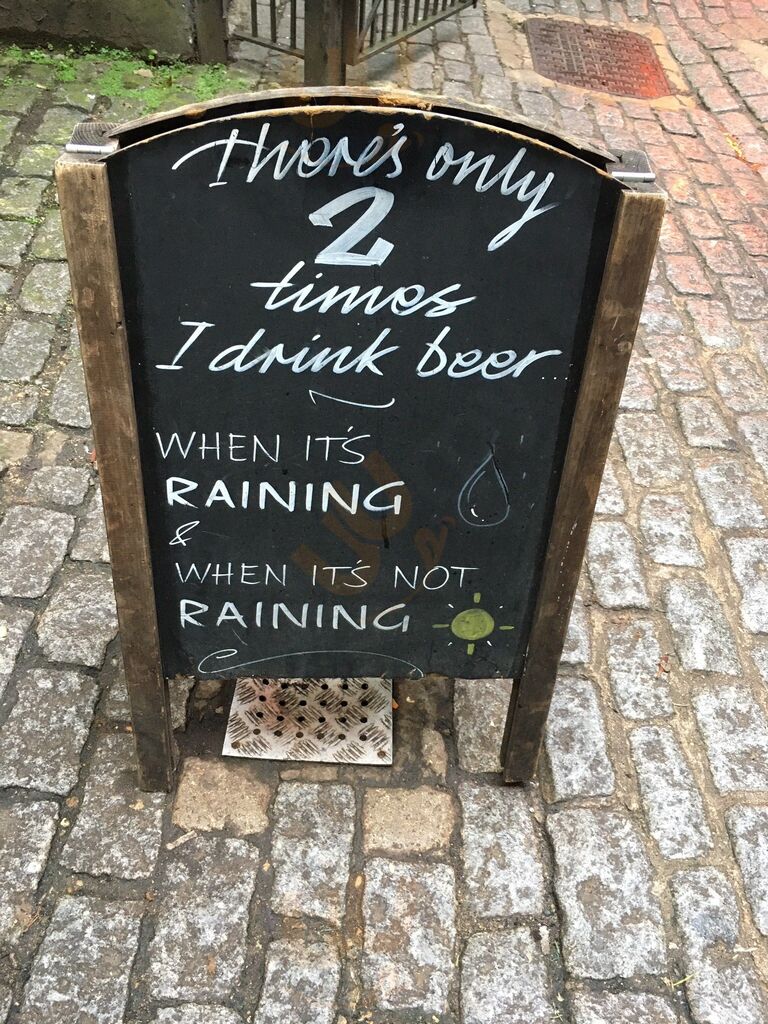 There's only
2
times
I drink beer...
WHEN IT'S
RAINING
&
WHEN IT'S NOT
RAINING